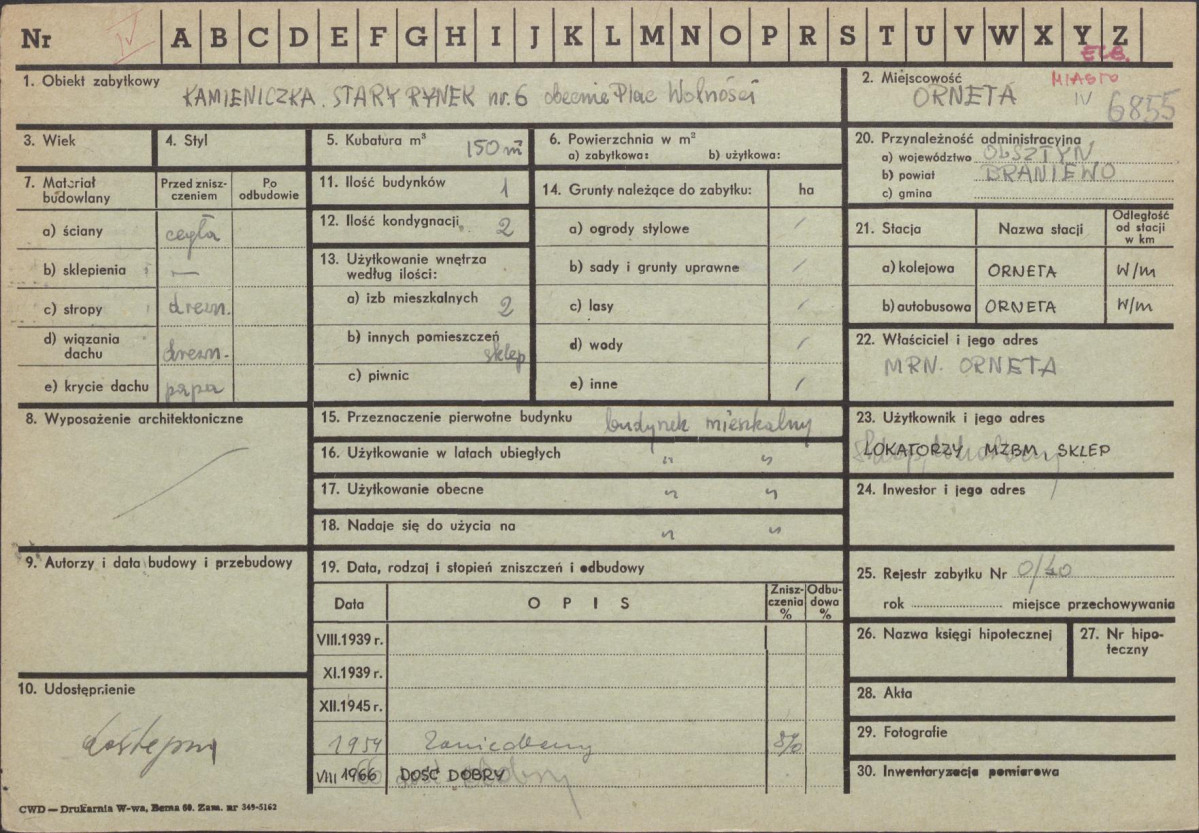 Nr IV A B C D E F G H I J K L M N O P R S T U V W X Y Z
ELB.
1. Obiekt zabytkowy
KAMIENICZKA. STARY RYNEK nr. 6 obecnie Plac Wolności
2. Miejscowość MIASTO
ORNETA IV 6855
3. Wiek
4. Styl
5. Kubatura m³ 150 m³
6. Powierzchnia w m²
a) zabytkowa: b) użytkowa:
20. Przynależność administracyjna
a) województwo OLSZTYN
b) powiat BRANIEWO
c) gmina
7. Materiał budowlany
Przed znisz-
czeniem
Po
odbudowie
a) ściany cegła
b) sklepienia —
c) stropy drewn.
d) wiązania
dachu drewn.
e) krycie dachu papa
11. Ilość budynków 1
12. Ilość kondygnacji 2
13. Użytkowanie wnętrza
według ilości:
a) izb mieszkalnych 2
b) innych pomieszczeń
sklep
c) piwnic
14. Grunty należące do zabytku: ha
a) ogrody stylowe /
b) sady i grunty uprawne /
c) lasy /
d) wody /
e) inne /
21. Stacja Nazwa stacji
Odległość
od stacji
w km
a) kolejowa ORNETA W/m
b) autobusowa ORNETA W/m
22. Właściciel i jego adres
MRN. ORNETA
8. Wyposażenie architektoniczne
15. Przeznaczenie pierwotne budynku budynek mieszkalny
16. Użytkowanie w latach ubiegłych " "
17. Użytkowanie obecne " "
18. Nadaje się do użycia na " "
23. Użytkownik i jego adres
LOKATORZY MZBM, SKLEP
24. Inwestor i jego adres
9. Autorzy i data budowy i przebudowy
19. Data, rodzaj i stopień zniszczeń i odbudowy
Data OPIS
Znisz-
czenia
%
Odbu-
dowa
%
VIII.1939 r.
XI.1939 r.
XII.1945 r.
1959 Zaniedbany 8%
VIII 1966 DOŚĆ DOBRY
25. Rejestr zabytku Nr 0/40
rok miejsce przechowywania
26. Nazwa księgi hipotecznej
27. Nr hipo-
teczny
10. Udostępnienie
dostępny
28. Akta
29. Fotografie
30. Inwentaryzacja pomiarowa
CWD — Drukarnia W-wa, Bema 60. Zam. nr 349-5162